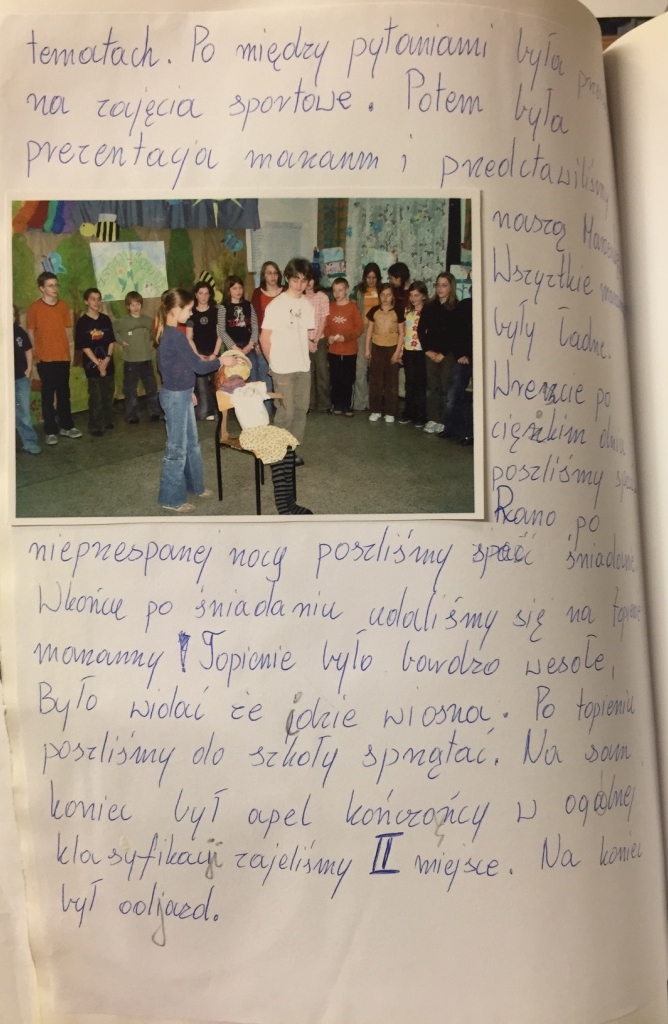 tematach. Po między pytaniami była
na zajęcia sportowe. Potem była
prezentacja marzann i przedctawiliśmy
naszą
Wszystkie
były ładne.
Wreszcie po
ciężkim dniu
poszliśmy
Rano po
nieprzespanej nocy poszliśmy
Wkońcu po śniadaniu udaliśmy się na
marzanny! Topienie było bardzo wesołe,
Było widać że idzie wiosna. Po topieniu
poszliśmy do szkoły sprzątać. Na sam
koniec był apel kończący w ogólnej
klasyfikacji zajeliśmy II miejsce. Na koniec
był odjazd.